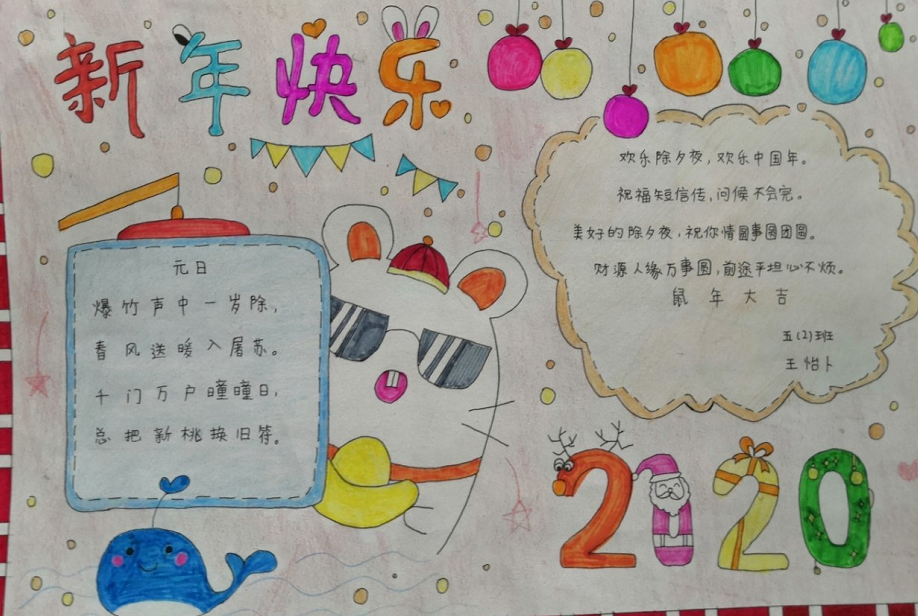 新年快乐
元日
爆竹声中一岁除,
春风送暖入屠苏。
千门万户曈曈日,
总把新桃换旧符。
欢乐除夕夜,欢乐中国年。
祝福短信传,问候不会完。
美好的除夕夜,祝你情圆事圆团圆。
财源人缘万事圆,前途平坦心不烦。
鼠年大吉
五(2)班
王怡卜
2020